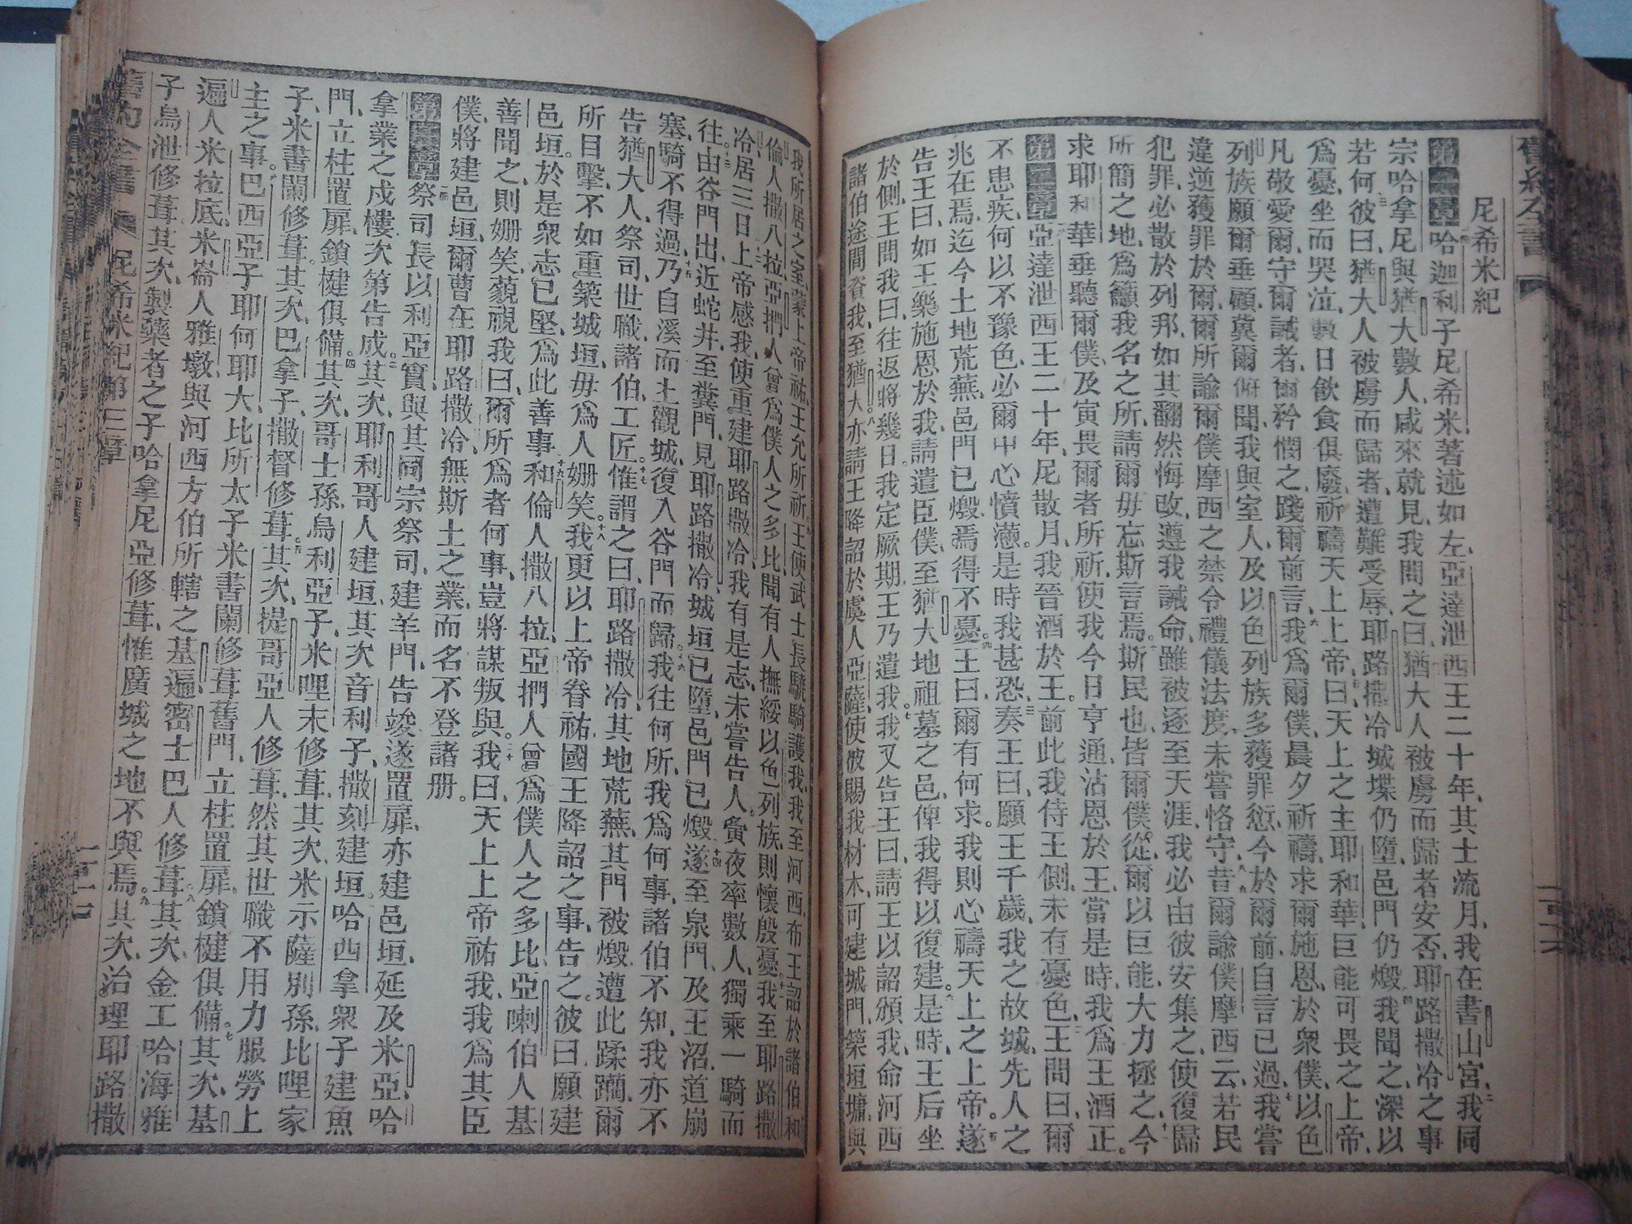 舊約全書
尼希米紀
第一章哈迦利子尼希米著述如左亞達泄西王二十年其士流月我在書山宮我同
宗哈拿尼與猶大數人咸來就見我問之曰猶大人被虜而歸者安否耶路撒冷之事
若何彼曰猶大人被虜而歸者遭難受辱耶路撒冷城堞仍墮邑門仍燬我聞之深以
爲憂坐而哭泣數日飲食俱廢祈禱天上上帝曰天上之主耶和華巨能可畏之上帝
凡敬愛爾守爾誡者爾矜憫之踐爾前言我爲爾僕晨夕祈禱求爾施恩於衆僕以色
列族願爾垂顧冀爾俯聞我與室人及以色列族多獲罪愆今於爾前自言已過我嘗
違逆獲罪於爾爾所諭爾僕摩西之禁令禮儀法度未嘗恪守昔爾諭僕摩西云若民
犯罪必散於列邦如其翻然悔改遵我誡命雖被逐至天涯我必由彼安集之使復歸
所簡之地爲籲我名之所請爾毋忘斯言焉斯民也皆爾僕從爾以巨能大力拯之今
求耶和華垂聽爾僕及寅畏爾者所祈使我今日亨通沾恩於王當是時我爲王酒正
第二章亞達泄西王二十年尼散月我晉酒於王前此我侍王側未有憂色王問曰爾
不患疾何以不豫色必爾中心憤懣是時我甚恐奏王曰願王千歲我之故城先人之
兆在焉迄今土地荒蕪邑門已燬焉得不憂王曰爾有何求我則心禱天上之上帝遂
告王曰如王樂施恩於我請遣臣僕至猶大地祖墓之邑俾我得以復建是時王后坐
於側王問我曰往返將幾日我定厥期王乃遣我我又告王曰請王以詔頒我命河西
諸伯途間資我至猶大亦請王降詔於虞人亞薩使彼賜我材木可建城門築垣墉與
我所居之室蒙上帝祐王允所祈王使武士長驍騎護我我至河西布王詔於諸伯和
倫人撒八拉亞捫人曾爲僕人之多比聞有人撫綏以色列族則懷殷憂我至耶路撒
冷居三日上帝感我使重建耶路撒冷我有是志未嘗告人夤夜率數人獨乘一騎而
往由谷門出近蛇井至糞門見耶路撒冷城垣已墮邑門已燬遂至泉門及王沼道崩
塞騎不得過乃自溪而上觀城復入谷門而歸我往何所我爲何事諸伯不知我亦不
告猶大人祭司世職諸伯工匠惟謂之曰耶路撒冷其地荒蕪其門被燬遭此蹂躪爾
所目擊不如重築城垣毋爲人姍笑我更以上帝眷祐國王降詔之事告之彼曰願建
邑垣於是衆志已堅爲此善事和倫人撒八拉亞捫人曾爲僕人之多比亞喇伯人基
善聞之則姍笑藐視我曰爾所爲者何事豈將謀叛與我曰天上上帝祐我我爲其臣
僕將建邑垣爾曹在耶路撒冷無斯土之業而名不登諸册
第三章祭司長以利亞實與其同宗祭司建羊門告竣遂置扉亦建邑垣延及米亞哈
拿業之戍樓次第告成其次耶利哥人建垣其次音利子撒刻建垣哈西拿衆子建魚
門立柱置扉鎖楗俱備其次哥士孫烏利亞子米哩末修葺其次米示薩別孫比哩家
子米書闌修葺其次巴拿子撒督修葺其次提哥亞人修葺然其世職不用力服勞上
主之事巴西亞子耶何耶大比所太子米書闌修葺舊門立柱置扉鎖楗俱備其次基
遍人米拉底米崙人雅墩與河西方伯所轄之基遍密士巴人修葺其次金工哈海雅
子烏泄修葺其次製藥者之子哈拿尼亞修葺惟廣城之地不與焉其次治理耶路撒
舊約全書 尼希米紀第三章